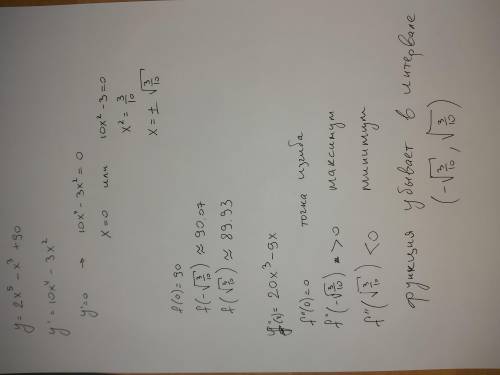 y = 2x⁵ - x³ + 90
y' = 10x⁴ - 3x²
y'=0 → 10x⁴ - 3x² = 0
x=0 или 10x² - 3 = 0
x² = 3/10
x = ± √(3/10)
f(0) = 90
f(-√(3/10)) ≈ 90.07
f(√(3/10)) ≈ 89.93
y''(x) = 20x³ - 9x
f''(0) = 0 точка изгиба
f''(-√(3/10)) > 0 максимум
f''(√(3/10)) < 0 минимум
функция убывает в интервале
(-√(3/10), √(3/10))